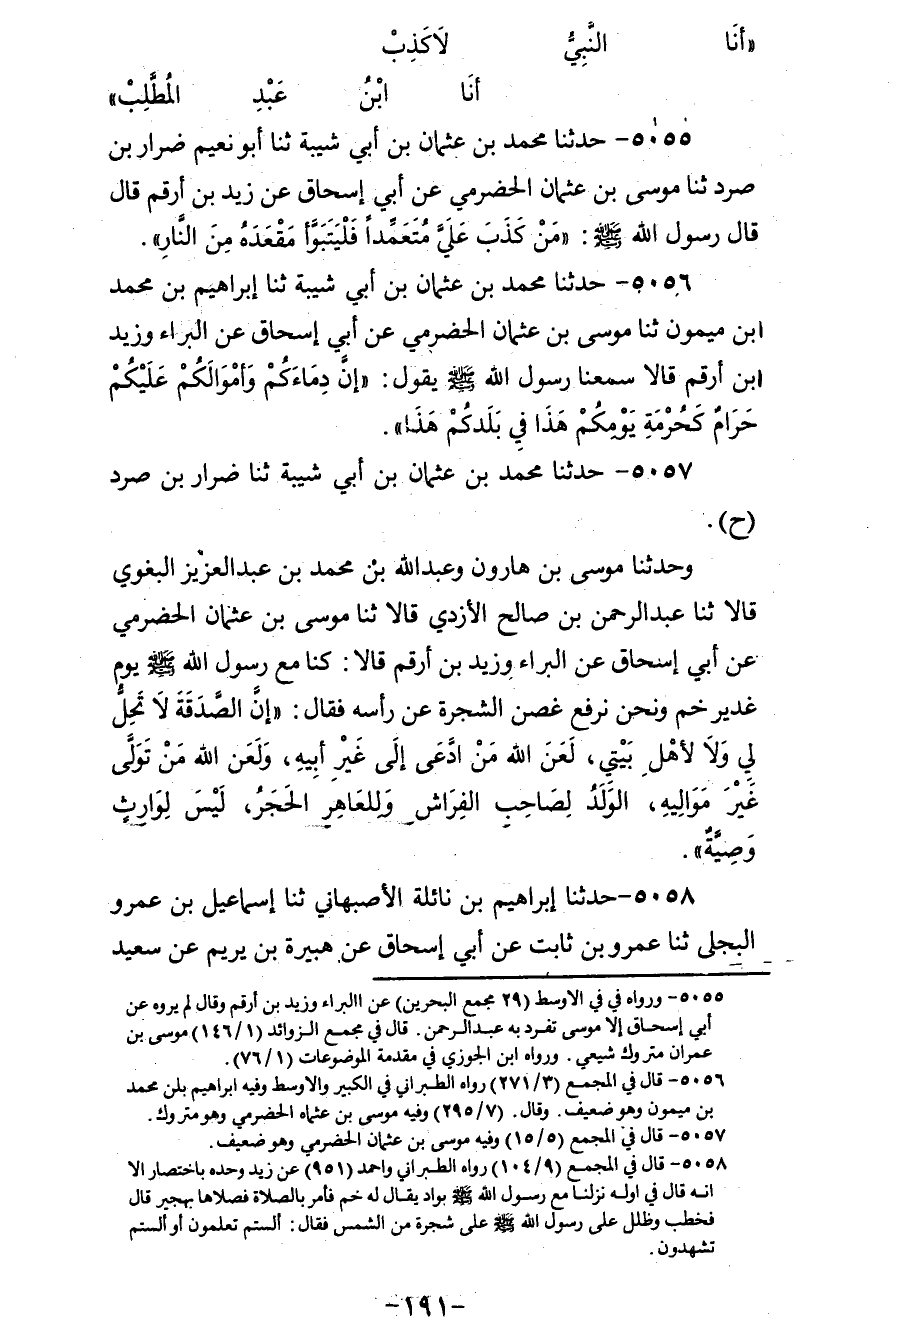 «أَنَا النَّبِيُّ لَا كَذِبْ
أَنَا ابْنُ عَبْدِ المُطَّلِبْ»
٥٠٥٥- حدثنا محمد بن عثمان بن أبي شيبة ثنا أبو نعيم ضرار بن
صرد ثنا موسى بن عثمان الحضرمي عن أبي إسحاق عن زيد بن أرقم قال
قال رسول الله ﷺ : «مَنْ كَذَبَ عَلَيَّ مُتَعَمِّداً فَلْيَتَبَوَّأ مَقْعَدَهُ مِنَ النَّارِ» .
٥٠٥٦- حدثنا محمد بن عثمان بن أبي شيبة ثنا إبراهيم بن محمد
ابن ميمون ثنا موسى بن عثمان الحضرمي عن أبي إسحاق عن البراء وزيد
ابن أرقم قالا سمعنا رسول الله ﷺ يقول : «إنَّ دِمَاءَكُمْ وَأمْوَالَكُمْ عَلَيْكُمْ
حَرَامٌ كَحُرْمَةِ يَوْمِكُمْ هَذَا فِي بَلَدِكُمْ هَذَا» .
٥٠٥٧- حدثنا محمد بن عثمان بن أبي شيبة ثنا ضرار بن صرد
(ح) .
وحدثنا موسى بن هارون وعبدالله بن محمد بن عبدالعزيز البغوي
قالا ثنا عبدالرحمن بن صالح الأزدي قالا ثنا موسى بن عثمان الحضرمي
عن أبي إسحاق عن البراء وزيد بن أرقم قالا : كنا مع رسول الله ﷺ يوم
غدير خم ونحن نرفع غصن الشجرة عن رأسه فقال : «إنَّ الصَّدَقَةَ لَا تَحِلُّ
لِي وَلَا لأهْلِ بَيْتِي، لَعَنَ الله مَنْ ادَّعَى إلَى غَيْرِ أبِيهِ، وَلَعَن الله مَنْ تَوَلَّى
غَيْرَ مَوَالِيهِ، الوَلَدُ لِصَاحِبِ الفِرَاشِ وَلِلعَاهِرِ الحَجَرُ، لَيْسَ لِوَارِثٍ
وَصِيَّةٌ» .
٥٠٥٨-حدثنا إبراهيم بن نائلة الأصبهاني ثنا إسماعيل بن عمرو
البجلى ثنا عمرو بن ثابت عن أبي إسحاق عن هبيرة بن يريم عن سعيد
٥٠٥٥- ورواه في في الاوسط (٢٩ مجمع البحرين) عن االبراء وزيد بن أرقم وقال لم يروه عن
أبي إسحاق إلا موسى تفرد به عبدالرحمن . قال في مجمع الزوائد (١٤٦/١) موسى بن
عمران متروك شيعي . ورواه ابن الجوزي في مقدمة الموضوعات (٧٦/١) .
٥٠٥٦- قال في المجمع (٢٧١/٣) رواه الطبراني في الكبير والاوسط وفيه ابراهيم بلن محمد
بن ميمون وهو ضعيف . وقال . (٢٩٥/٧) وفيه موسى بن عثماه الحضرمي وهو متروك .
٥٠٥٧- قال في المجمع (١٥/٥) وفيه موسى بن عثمان الحضرمي وهو ضعيف .
٥٠٥٨- قال في المجمع (١٠٤/٩) رواه الطبراني واحمد (٩٥١) عن زيد وحده باختصار الا
انه قال في اوله نزلنا مع رسول الله ﷺ بواد يقال له خم فأمر بالصلاة فصلاها بهجير قال
فخطب وظلل على رسول الله ﷺ على شجرة من الشمس فقال : ألستم تعلمون أو ألستم
تشهدون .
-١٩١-